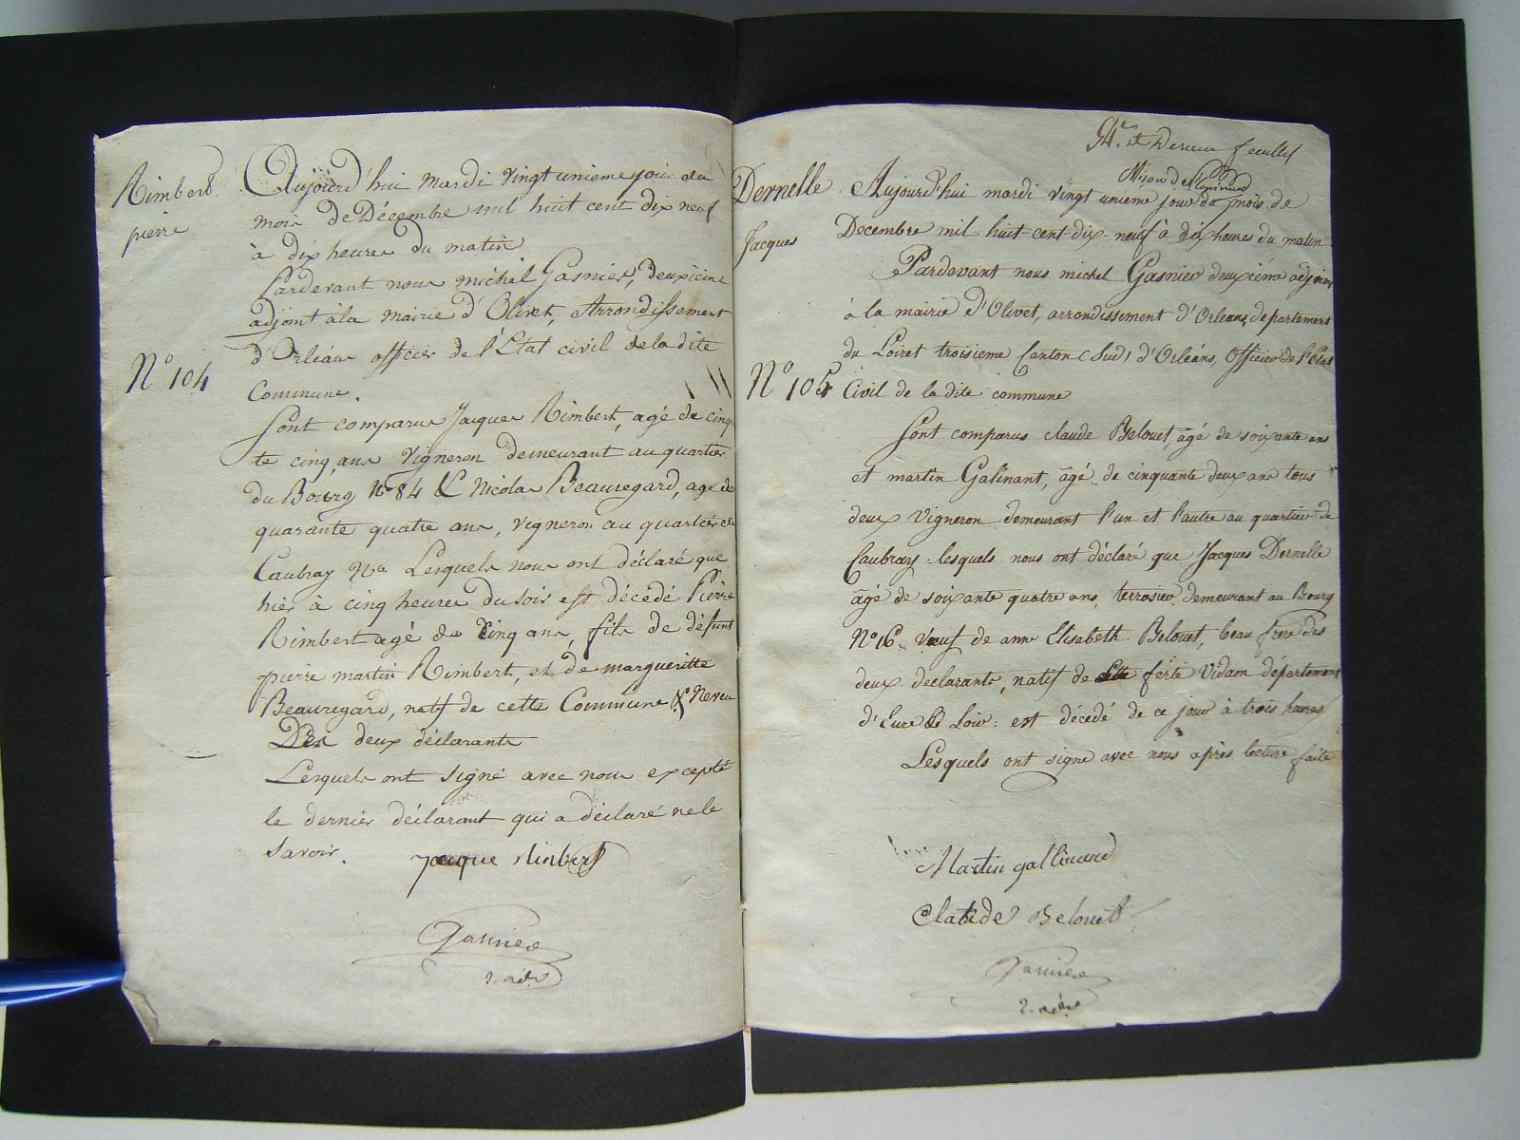 Rimbert
pierre
N° 104
Aujourd'hui mardi vingt unieme jour du
mois de Décembre mil huit cent dix neuf
à dix heures du matin
Pardevant nous michel Gasnier, deuxieme
adjoint à la mairie d'Olivet, Arrondissement
d'Orléans officier de l'État civil de la dite
Commune.
Sont comparus Jacques Rimbert, agé de cinq
te cinq ans vigneron demeurant au quartier
du Bourg N° 84 & Nicolas Beauregard, agé de
quarante quatre ans, vigneron au quartier de
Caubray Lesquels nous ont déclaré que
hier à cinq heures du soir est décédé Pierre
Rimbert agé de cinq ans, fils de défunt
pierre martin Rimbert, et de margueritte
Beauregard, natif de cette Commune & Neveu
Des deux déclarants
Lesquels ont signé avec nous excepté
le dernier déclarant qui a déclaré ne le
savoir.
Jacque Rinbert
Gasnier
2. adj
94e et Dernier feuillet
Dernelle
Jacques
N° 105
Aujourd'hui mardi vingt unieme jour du mois de
Decembre mil huit cent dix neuf à dix heures du matin
Pardevant nous michel Gasnier deuxième adjoint
à la mairie d'Olivet, arrondissement d'Orléans, departement
du Loiret troisieme Canton (Sud) d'Orléans, Officier de l'État
Civil de la dite commune
Sont comparus claude Belouet, âgé de soixante ans
et martin Galinant, âgé de cinquante deux ans tous
deux vigneron demeurant l'un et l'autre au quartier de
Caubray lesquels nous ont déclaré que Jacques Dernelle
âgé de soixante quatre ans, terrasier, demeurant au Bourg
N° 16, veuf de anne Elisabeth Belouet, beau frere des
deux declarants, natif de ferte Vidam departement
d'Eure & Loir: est décédé de ce jour à trois heures
Lesquels ont signe avec nous après lecture faite
Martin gallinand
Claude Belouet
Gasnier
2. adj